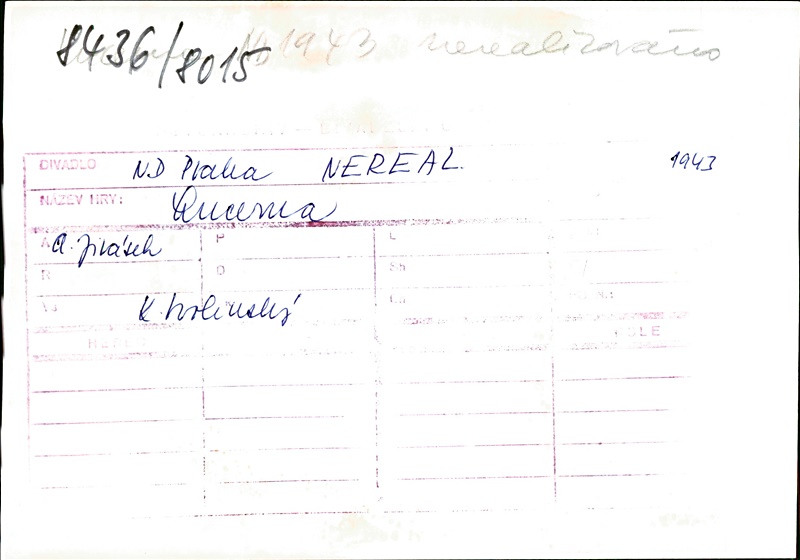 8436/8015 1943 nerealizováno
DIVADLO ND Praha NEREAL. 1943
NÁZEV HRY: Lucerna
A A. Jirásek P L
R D Sh
K. Svolinský